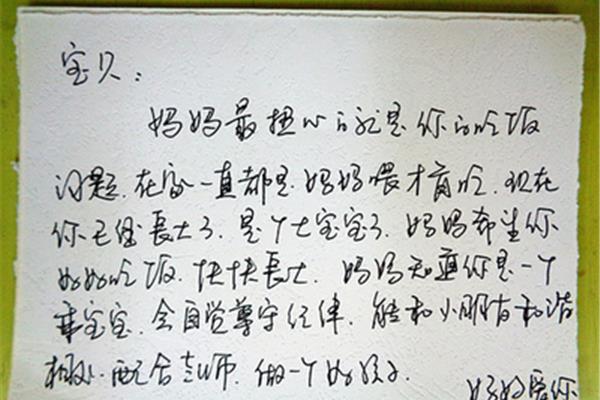 宝贝：
妈妈最担心的就是你的吃饭
问题，在家一直都是妈妈喂才肯吃，现在
你已经長大了，是个大宝宝了，妈妈希望你
好好吃饭，快快長大，妈妈知道你是一个
乖宝宝，会自觉尊守纪律，能和小朋友和谐
相处，配合老师，做一个好孩子。
妈妈爱你